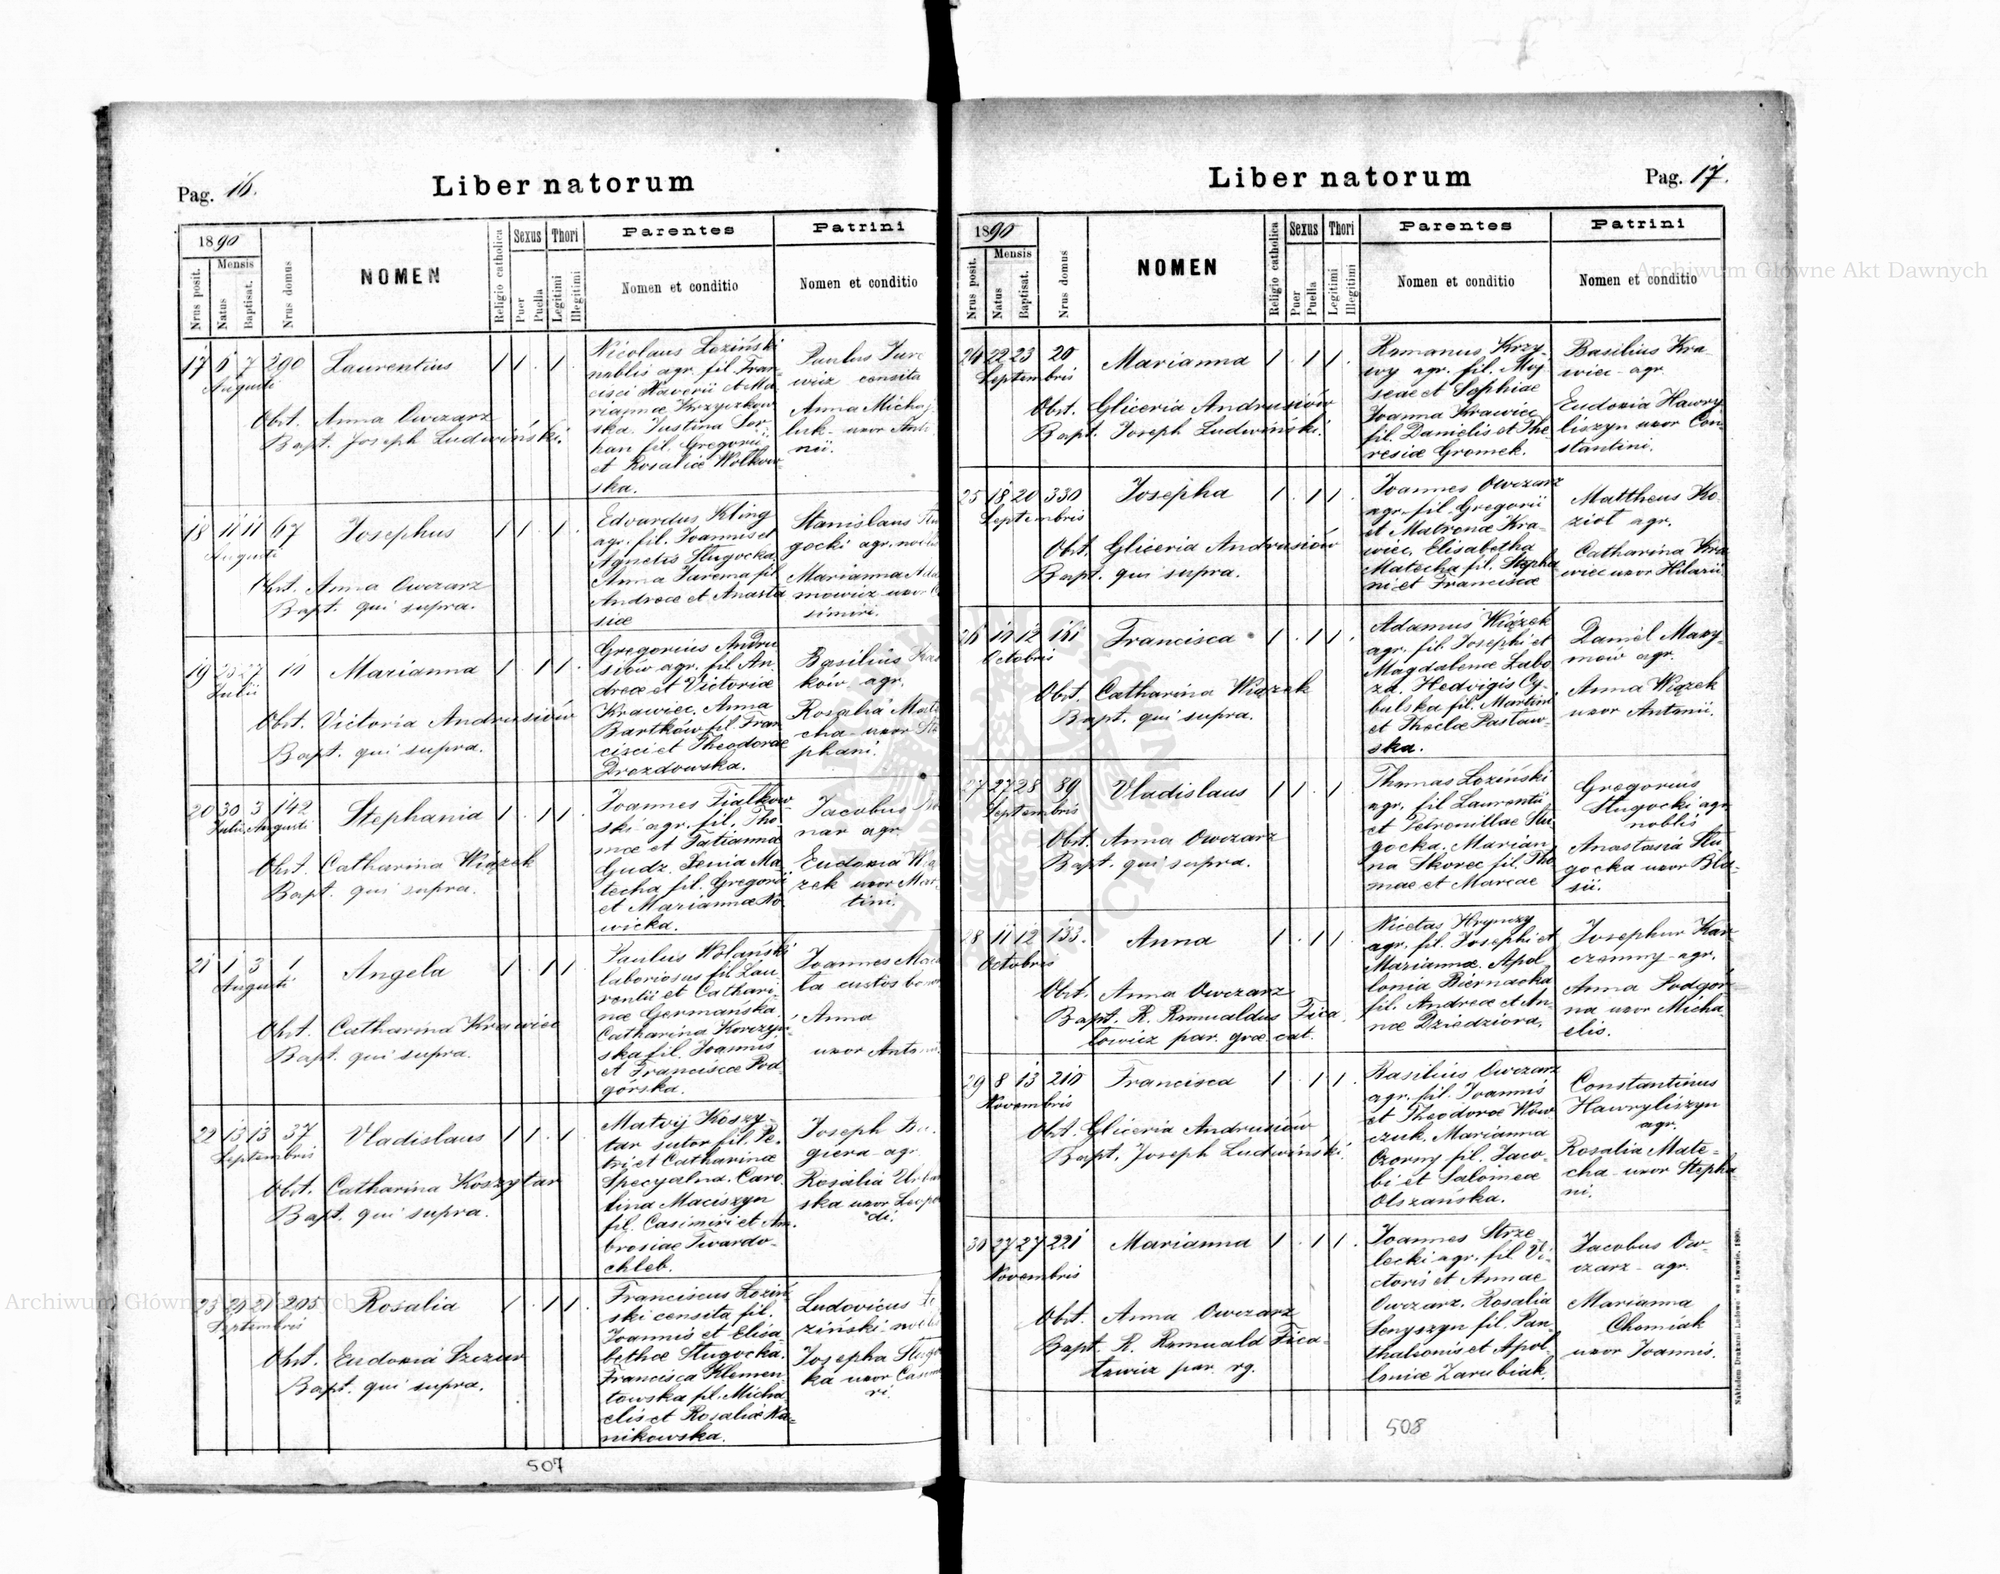 Pag. 16.
Liber natorum
1890
Nrus posit.
Mensis
Natus
Baptisat.
Nrus domus
NOMEN
Religio catholica
Sexus
Puer
Puella
Thori
Legitimi
Illegitimi
Parentes
Nomen et conditio
Patrini
Nomen et conditio
17 6 7 290 Laurentius 1 1 1
Augusti
Obst. Anna Owczarz
Bapt. Joseph Ludwiński.
Nicolaus Loziński
nobilis agr. fil. Fran-
cisci Xaverii et Ma-
riannæ Krzyczkow
ska. Justina Ser-
han fil. Gregorii
et Rosaliæ Wolkow-
ska.
Paulus Jure
wicz censita
Anna Michaj
luk - uxor Anto
nii.
18 11 11 67 Josephus 1 1 1
Augusti
Obst. Anna Owczarz
Bapt. qui supra.
Edvardus Kling
agr. fil. Joannis et
Agnetis Sługocka.
Anna Jarema fil.
Andreæ et Anasta
siæ
Stanislaus Słu
gocki agr. nobilis
Marianna Ada
mowicz uxor C
simiri.
19 25 27 11 Marianna 1 1 1
Julii
Obst. Victoria Andrusiów
Bapt. qui supra.
Gregorius Andru
siów agr. fil. An
dreæ et Victoriæ
Krawiec, Anna
Bartków fil. Fran
cisci et Theodoræ
Drozdowska.
Basilius
ków agr.
Rosalia Mate
cha - uxor Ste
phani.
20 30 3 142 Stephania 1 1 1
Julii Augusti
Obst. Catharina Wiązek
Bapt. qui supra.
Joannes Fialkow
ski agr. fil. Tho
mæ et Tatiannæ
Gudz. Xenia Ma
techa fil. Gregorii
et Mariannæ No
wicka.
Jacobus
nar agr.
Eudoxia Wią
zek uxor Mar-
tini.
21 1 3 1 Angela 1 1 1
Augusti
Obst. Catharina Krawiec
Bapt. qui supra.
Paulus Wolański
laboriosus fil. Lau
rentii et Cathari
næ Germańska.
Catharina Korczyń
ska fil. Joannis
et Franciscæ Pod-
górska.
Joannes
ta custos
Anna
uxor Anto
22 13 13 37 Vladislaus 1 1 1
Septembris
Obst. Catharina Koszytar
Bapt. qui supra.
Matvij Koszy-
tar sutor fil. Pe-
tri et Catharinæ
Specyalna. Caro
lina Maciszyn
fil. Casimiri et Am-
brosiæ Twardo-
chleb.
Joseph Ba
giera - agr.
Rosalia Urba
ska uxor Leopol
di.
23 20 21 205 Rosalia 1 1 1
Septembris
Obst. Eudoxia Szczur
Bapt. qui supra.
Franciscus Loziń
ski censita fil.
Joannis et Elisa-
bethæ Sługocka.
Francisca Klemen
towska fil. Micha
elis et Rosaliæ Na-
nikowska.
Ludovicus Ło
ziński nobilis
Josepha Sługo
ka uxor Casimi
ri.
507
Liber natorum
Pag. 17.
1890
Nrus posit.
Mensis
Natus
Baptisat.
Nrus domus
NOMEN
Religio catholica
Sexus
Puer
Puella
Thori
Legitimi
Illegitimi
Parentes
Nomen et conditio
Patrini
Nomen et conditio
22 23 20 Marianna 1 1 1
Septembris
Obst. Gliceria Andrusiów
Bapt. Joseph Ludwiński.
Romanus Krzy-
wy agr. fil. Moj
seæ et Sophiæ
Joanna Krawiec
fil. Danielis et The
resiæ Gromek.
Basilius Kra
wiec - agr.
Eudoxia Hawry
liszyn uxor Con-
stantini.
25 18 20 330 Josepha 1 1 1
Septembris
Obst. Gliceria Andrusiów
Bapt. qui supra.
Joannes Owczarz
agr. fil. Gregorii
et Matronæ Kra-
wiec, Elisabetha
Matecha fil. Stepha
ni et Franciscæ
Mattheus Ko-
zioł agr.
Catharina Kra
wiec uxor Hilarii
26 10 12 161 Francisca 1 1 1
Octobris
Obst. Catharina Wiązek
Bapt. qui supra.
Adamus Wiązek
agr. fil. Josephi et
Magdalenæ Labo
za. Hedvigis Cy-
bulska fil. Martini
et Theclæ Pastaw-
ska.
Daniel Maxy-
mów agr.
Anna Wiązek
uxor Antonii.
27 27 28 89 Vladislaus 1 1 1
Septembris
Obst. Anna Owczarz
Bapt. qui supra.
Thomas Loziński
agr. fil Laurentii
et Petronillae Słu
gocka, Marian
na Skorec fil. Tho
mae et Marcae
Gregorius
Sługocki agr.
nobilis
Anastasia Słu
gocka uxor Bla-
sii.
28 11 12 133. Anna 1 1 1
Octobris
Obst. Anna Owczarz
Bapt. R. Romualdus Fica
towicz par. græ. cat.
Nicetas Hrynczy
agr. fil. Josephi et
Mariannæ. Apol
lonia Biernacka
fil. Andreæ et An-
næ Dziedziora.
Josephus Kar
czemny - agr.
Anna Podgór
na uxor Micha
elis.
29 8 13 210 Francisca 1 1 1
Novembris
Obst. Gliceria Andrusiów
Bapt. Joseph Ludwiński.
Basilius Owczarz
agr. fil. Joannis
et Theodoræ Kow
czuk. Marianna
Czorny fil. Jaco-
bi et Salomeæ
Olszańska.
Constantinus
Hawryliszyn
agr.
Rosalia Mate-
cha - uxor Stepha
ni.
30 27 27 221 Marianna 1 1 1
Novembris
Obst. Anna Owczarz
Bapt. R. Romuald Fica-
towicz par. rg.
Joannes Strze
lecki agr. fil Vi-
ctoris et Annae
Owczarz. Rosalia
Senyszyn fil. Pan-
thalionis et Apol-
loniæ Zarubiak.
Jacobus Ow-
czarz - agr.
Marianna
Chomiak
uxor Joannis.
508
Nakładem Drukarni Ludowej we Lwowie. 1890.
Archiwum Główne Akt Dawnych
Archiwum Główne Akt Dawnych